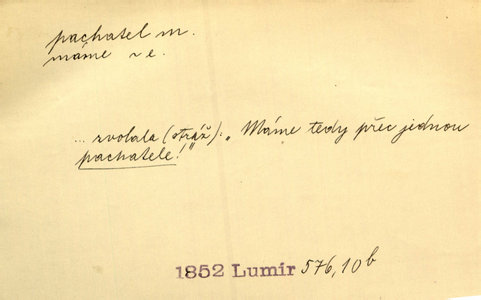 pachatel m.
máme ~ e.
... zvolala (stráž): „Máme tedy přec jednou
pachatele!"
1852 Lumír 576,10b